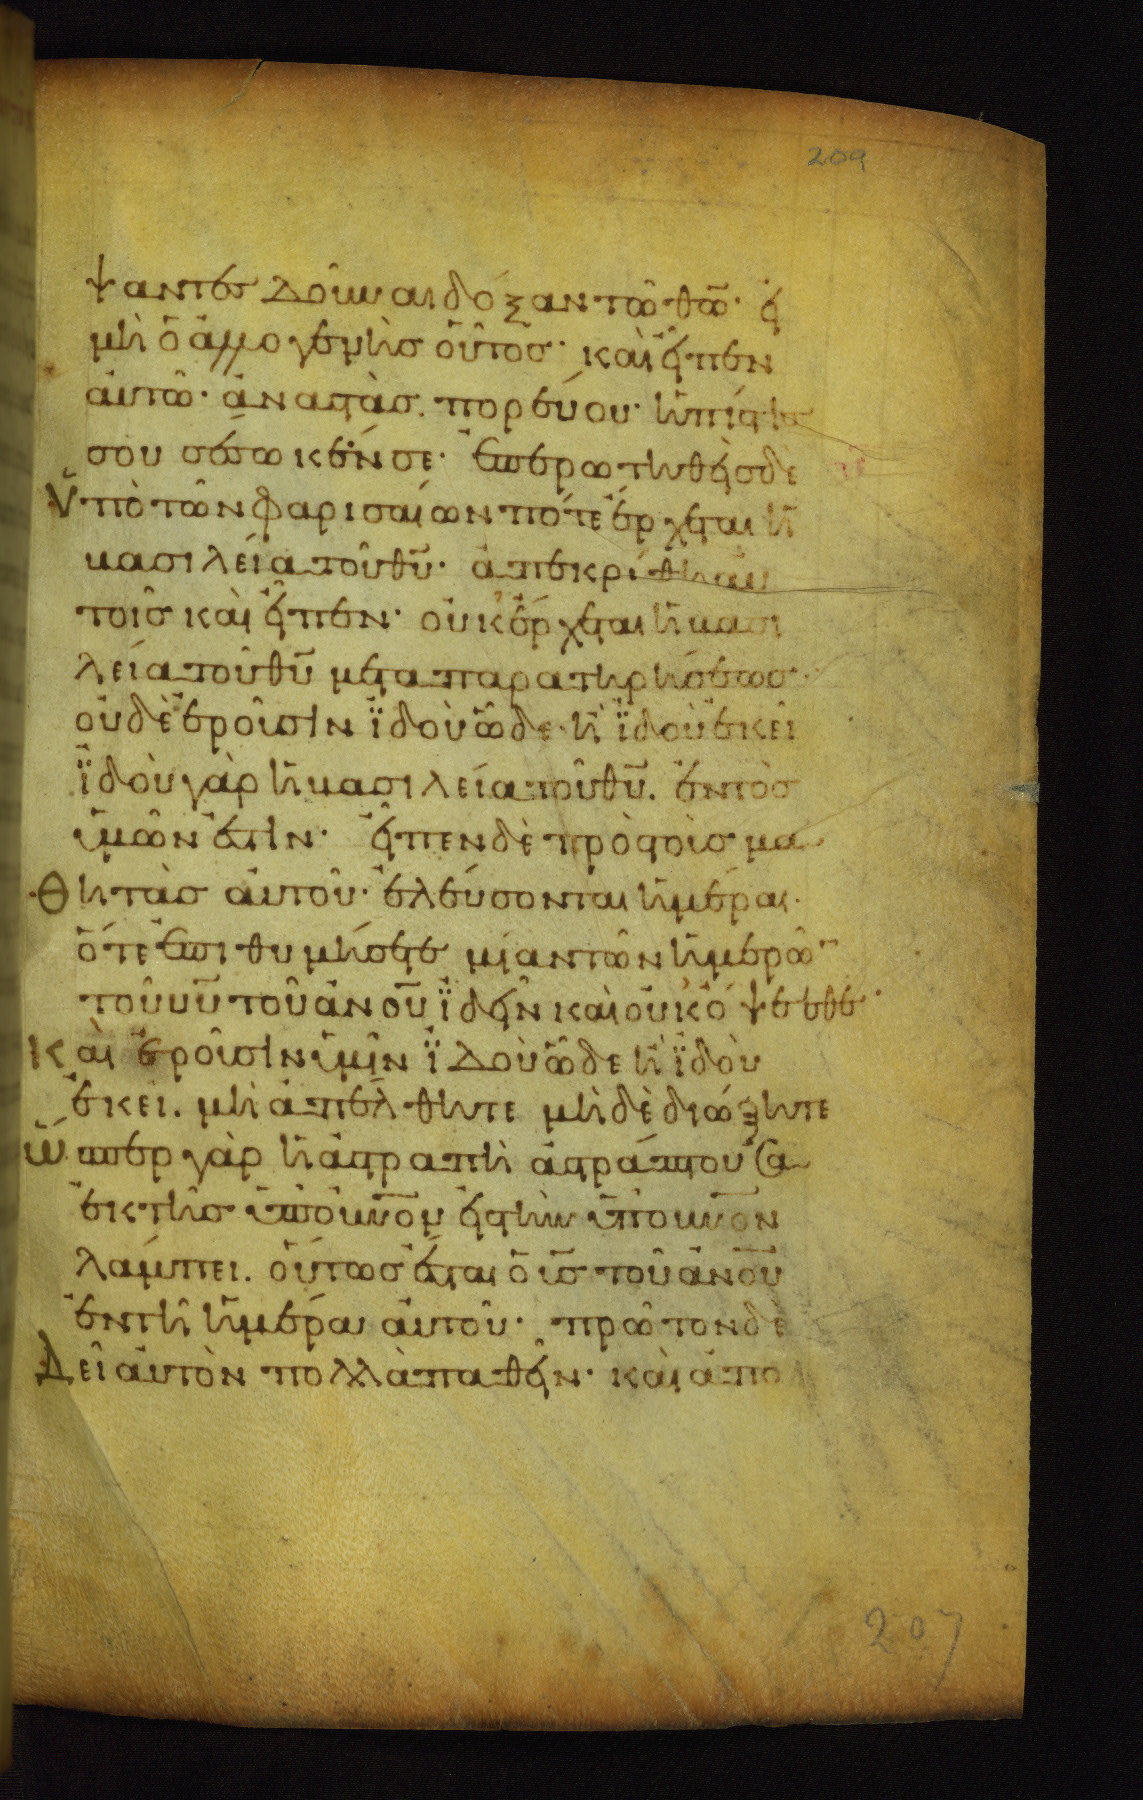 209
ψαντες δοῦναι δόξαν τῶ θῶ· εἰ
μὴ ὁ ἀλλογενὴς οὗτος· καὶ εἶπεν
αὐτῶ· ἀναστὰς πορεύου· ἡ πίστις
σου σέσωκέν σε· ἐπερωτηθεὶς δὲ
ὑπὸ τῶν φαρισαίων πότε ἔρχεται ἡ
βασιλεία τοῦ θῦ· ἀπεκρίθη αὐ
τοῖς καὶ εἶπεν· οὐκ ἔρχεται ἡ βασι
λεία τοῦ θῦ μετα παρατηρήσεως·
οὐδὲ ἐροῦσιν ἰδοὺ ὧδε· ἢ ἰδοὺ ἐκεῖ
ἰδοὺ γὰρ ἡ βασιλεία τοῦ θῦ. ἐντὸς
ὑμῶν ἐστιν· εἶπεν δὲ πρὸς τοὺς μα
θητὰς αὐτοῦ· ἐλεύσονται ἡμέραι·
ὅτε ἐπιθυμήσετε μίαν τῶν ἡμερῶ
τοῦ υῦ τοῦ ἀνοῦ ἰδεῖν καὶ οὐκ ὄψεσθε·
καὶ ἐροῦσιν ὑμῖν ἰδοὺ ὧδε ἢ ἰδοὺ
ἐκει. μὴ ἀπέλθητε μὴ δὲ διώξητε
ὥσπερ γὰρ ἡ ἀστραπὴ ἀστράπτουσα
ἐκ τῆς ὑπὸ οὐνον εἰς τὴν ὑπ οὐνον
λάμπει. οὕτως ἔσται ὁ υς τοῦ ἀνοῦ
ἐν τῆ ἡμέρα αὐτοῦ· πρῶτον δὲ
δεῖ αὐτὸν πολλὰ παθεῖν· καὶ ἀπο
207